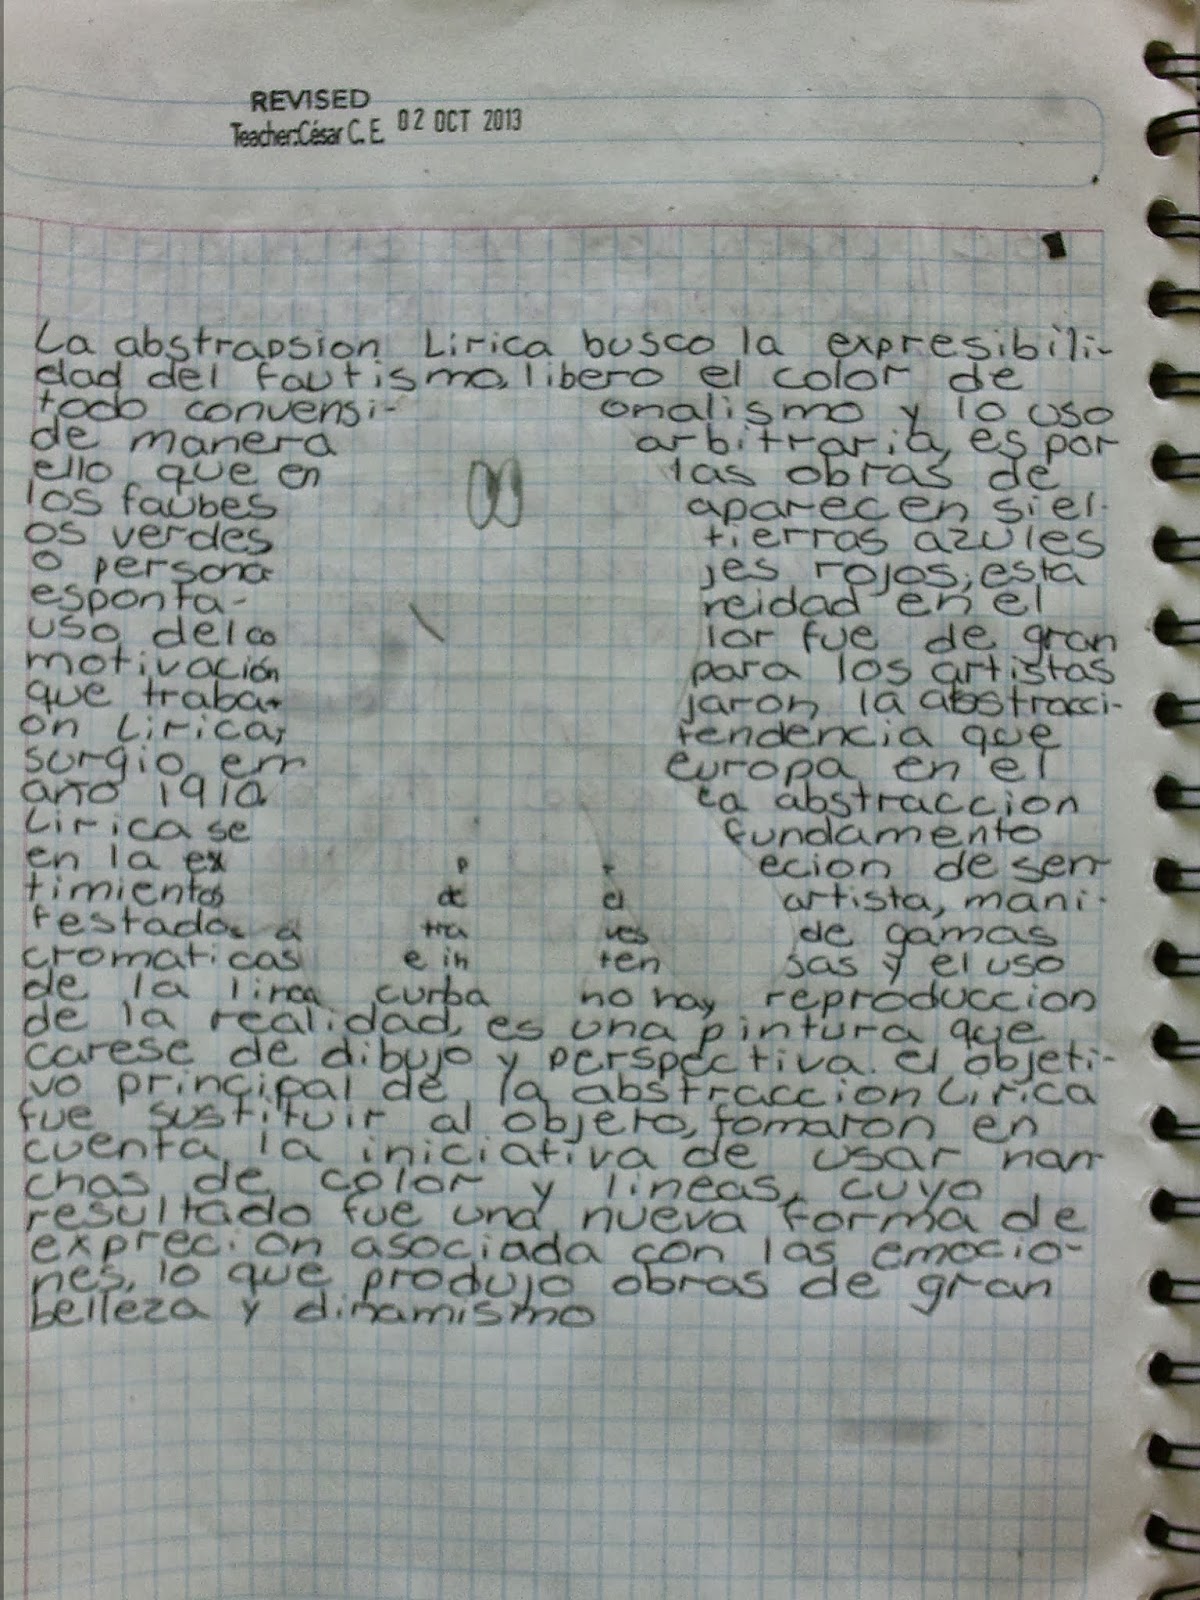 REVISED
Teacher:César C. E. 02 OCT 2013
La abstrapsion Lirica busco la expresibili-
dad del fautismo, libero el color de
todo convensi- onalismo y lo uso
de manera arbitraria, es por
ello que en las obras de
los faubes aparecen siel-
os verdes tierras azules
o persona jes rojos; esta
esponta- reidad en el
uso del co lor fue de gran
motivación para los artistas
que traba- jaron la abstracci-
on Lirica, tendencia que
surgio en Europa en el
año 1910 La abstraccion
Lirica se fundamento
en la ex p r ecion de sen-
timientos de el artista, mani-
festados a tra ves de gamas
cromaticas e in ten sas y el uso
de la linea curba no hay reproduccion
de la realidad, es una pintura que
carese de dibujo y perspectiva. el objeti-
vo principal de la abstraccion Lirica
fue sustituir al objero, tomaron en
cuenta la iniciativa de usar nan-
chas de color y lineas, cuyo
resultado fue una nueva forma de
exprecion asociada con las emocio-
nes, lo que produjo obras de gran
belleza y dinamismo